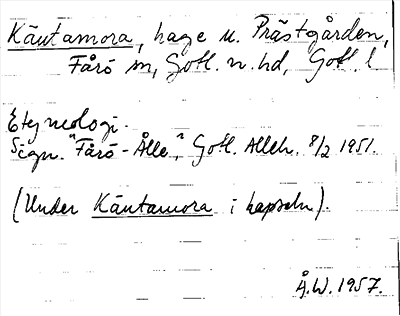 Käutamora, hage u. Prästgården,
Fårö sn, Gotl. n. hd, Gotl. l
Etymologi.
Sign. "Fårö-Ålle", Gotl. Alleh. 8/2 1951.
(Under Käutamora i kapseln).
Å.W. 1957.